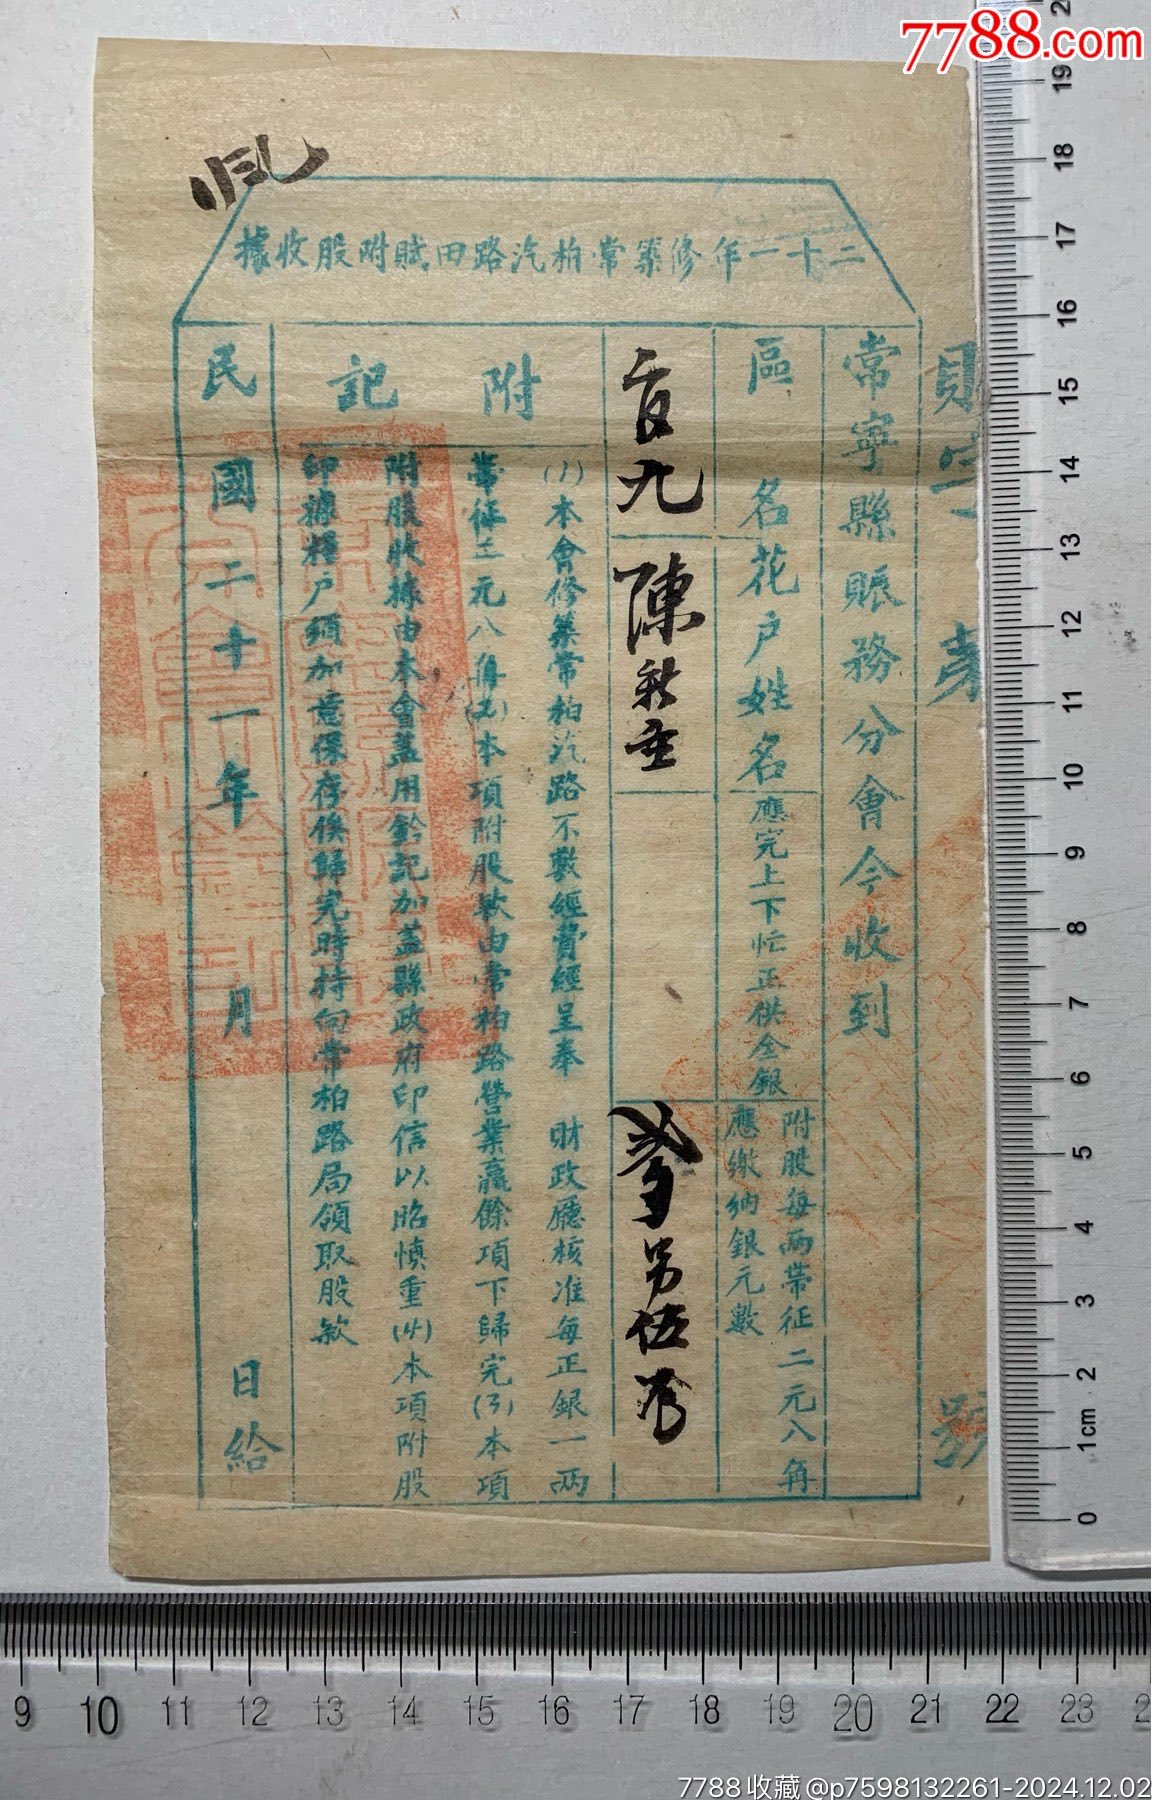 7788.com
二十一年修築常柏汽路田賦附股收據
常寧縣賑務分會今收到
區名
花户姓名
應完上下忙正供全銀
附股每兩帶征二元八角
應繳納銀元數
九
陳秋
伍
附記
(1)本會修築常柏汽路不敷經費經呈奉 財政廳核准每正銀一兩
帶征二元八角(2)本項附股款由常柏路營業贏餘項下歸完(3)本項
附股收據由本會蓋用鈐記加蓋縣政府印信以昭慎重(4)本項附股
印據糧户須加意保存俟歸完時持向常柏路局領取股款
民國二十一年 月 日給
號
20
19
18
17
16
15
14
13
12
11
10
9
8
7
6
5
4
3
2
1cm
0
9 10 11 12 13 14 15 16 17 18 19 20 21 22 23
7788收藏@p7598132261-2024.12.02